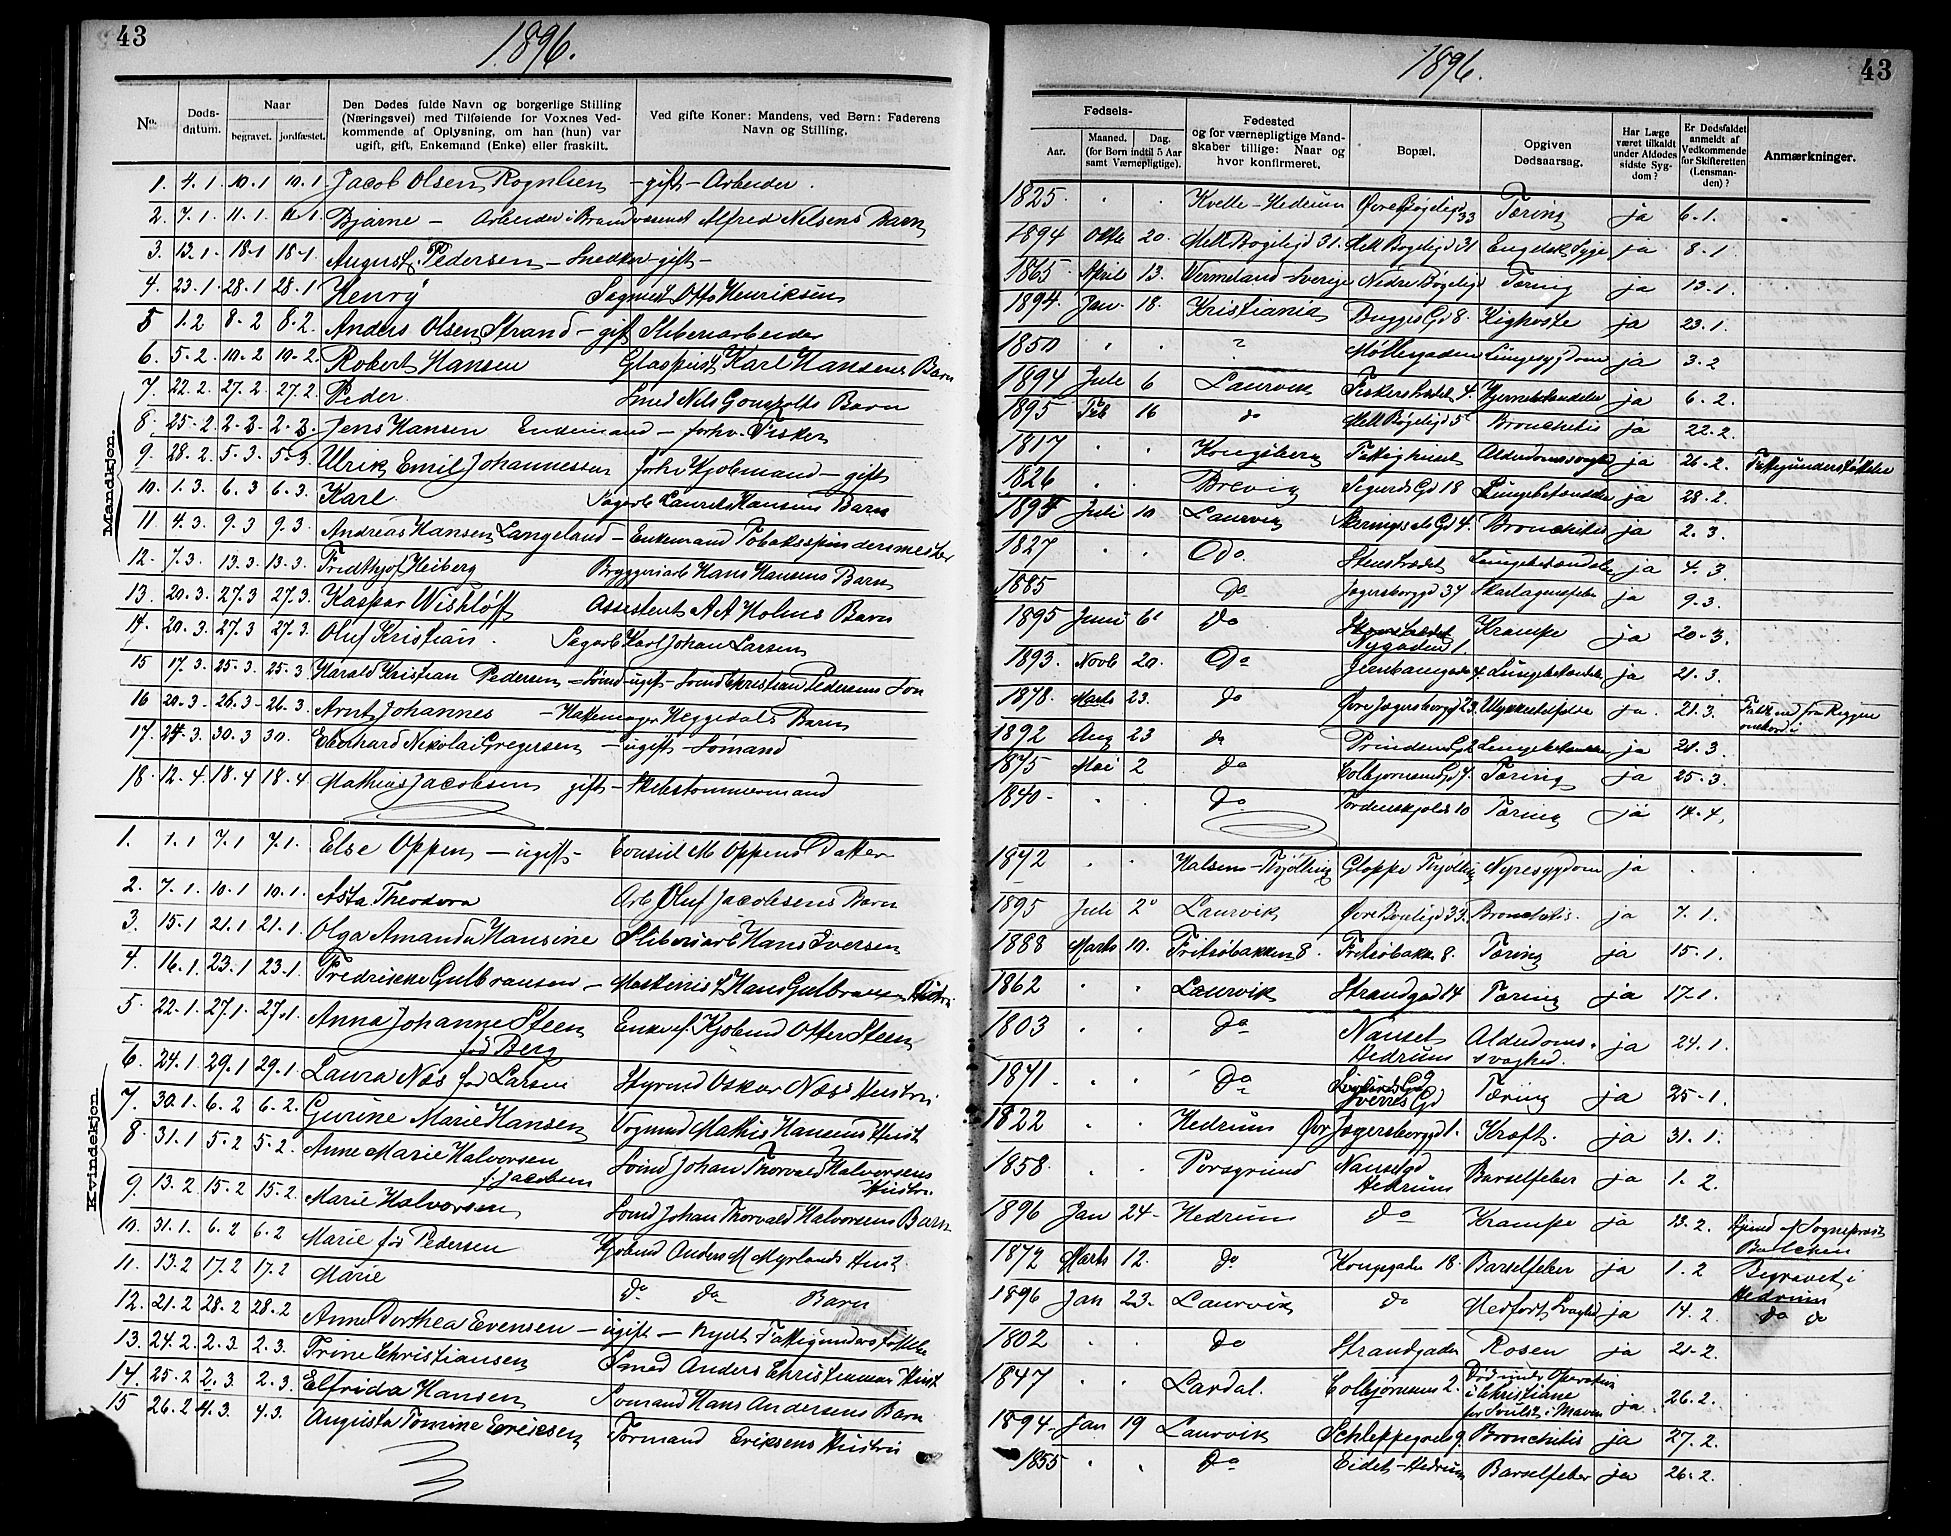 43
1896.
No.
Døds-
datum.
Naar
begravet. jordfæstet.
Den Dødes fulde Navn og borgerlige Stilling
(Næringsvei) med Tilføiende for Voxnes Ved-
kommende af Oplysning, om han (hun) var
ugift, gift, Enkemand (Enke) eller fraskilt.
Ved gifte Koner: Mandens, ved Børn: Faderens
Navn og Stilling.
Mandkjøn.
1. 4.1. 10.1 10.1 Jacob Olsen Rognlien - gift - Arbeider.
2. 7.1. 11.1. 11.1. Bjarne - Arbeider i Brandvæsenet Alfred Nilsens Barn
3. 13.1 18.1 18.1. August Pedersen - Snedker gift -
4. 23.1. 28.1 28.1 Henry Sagmest Otto Henriksen
5 1.2 8.2 8.2. Anders Olsen Strand - gift Sliberiarbeider
6. 5.2. 10.2 10.2. Robert Hansen Glaspust Karl Hansens Barn
7. 22.2. 27.2 27.2. Peder. Smed Nils Gonsholts Barn
8. 25.2. 2.3. 2.3. Jens Hansen Enkemand - forhv. Fisker
9. 28.2. 5.3. 5.3. Ulrik Emil Johannessen forhv Kjøbmand - gift
10. 1.3. 6.3 6.3. Karl. Sagarb Laurits Hansens Barn
11. 4.3. 9.3 9.3. Andreas Hansen Langeland - Enkemand Tobaksspindermester
12. 7.3. 13.3 13.3. Fridthjof Heiberg Bryggeriarb Hans Hansens Barn
13. 20.3. 27.3 27.3. Kaspar Wishløff Assistent A A Holms Barn
14. 20.3. 27.3 27.3. Oluf Kristian. Sagarb Karl Johan Larsen
15 17.3. 25.3. 25.3 Harald Kristian Pedersen - Sømd - ugift - Sømd Christian Pedersens Søn
16 20.3 26.3 26.3. Arnt Johannes - Hattemager Heggedals Barn
17. 24.3. 30.3 30. Eberhard Nikolai Gregersen - ugift - Sømand
18. 12.4. 18.4 18.4 Mathias Jacobsen gift - Skibstømmermand
Kvindekjøn.
1. 1.1 7.1 7.1. Else Oppen - ugift - Consul M Oppens Datter
2. 7.1. 10.1 10.1. Asta Theodora Arb Oluf Jacobsens Barn
3. 15.1 21.1 21.1. Olga Amanda Hansine Sliberiarb Hans Iversen
4. 16.1. 23.1 23.1. Fredrikke Gulbransen - Maskinist Hans Gulbransens Hustru
5. 22.1. 27.1. 27.1. Anna Johanne Steen Enke ef. Kjøbmd Otter Steen
fød Berg
6. 24.1. 29.1 29.1. Laura Næs fød Larsen Styrmd Oskar Næss Hustru
7. 30.1. 6.2 6.2. Gurine Marie Hansen Vogmnd Mathis Hansens Hust
8. 31.1 5.2 5.2. Anne Marie Halvorsen Sømd Johan Thorvald Halvorsens
f. Jacobsen Hustru.
9. 13.2 15.2 15.2. Marie Halvorsen Sømd Johan Thorvald Halvorsens Barn
10. 31.1. 6.2 6.2 Marie fød Pedersen Kjøbmd Anders M Myrlands Hust.
11. 13.2 17.2 17.2 Marie do do Barn
12. 21.2 28.2 28.2 Anne Dorthea Evensen - ugift - Nydt Fattigunderstøttelse
13. 24.2. 2.3. 2.3. Trine Christiansen Smed Anders Christiansens Hust
14. 25.2 2.3. 2.3. Elfrida Hansen Sømand Hans Andersens Barn
15 26.2 4.3. 4.3. Augusta Tomine Eriksen Tørmand Eriksens Hustru
1896.
43
Fødsels-
Aar.
Maaned. Dag.
(for Børn indtil 5 Aar
samt Værnepligtige).
Fødested
og for værnepligtige Mand-
skaber tillige: Naar og
hvor konfirmeret.
Bopæl.
Opgiven
Dødsaarsag.
Har Læge
været tilkaldt
under Afdødes
sidste Syg-
dom?
Er Dødsfaldet
anmeldt af
Vedkommende
for Skifteretten
(Lensman-
den)?
Anmærkninger.
1825. . . Kvelle - Hedrum Øvre Bøgeligd 33 Tæring ja 6.1.
1894 Oktb 20. Mell Bøgeligd 31. Mell Bøgeligd 31 Engelsk Syge ja 8.1
1865. April 13. Vermeland - Sverige Nedre Bøgeligd Tæring ja 13.1
1894. Jan. 18. Kristiania Bugges Gd 8. Kighoste ja 23.1.
1850 . . ? Møllegaden Lungesygdom ja 3.2
1894 Juli 6 Laurvik Fiskerstrædet 4. Hjernebetændelse ja 6.2.
1895 Feb 16 do Mell Bøgeligd 5 Bronchitis ja 22.2.
1817 . . Kongsberg Fattighuset Alderdomssvaghed ja 26.2. Fattigunderstøttelse
1826 . . Brevig Sigurds Gd 18 Lungebetændelse ja 28.2.
1894 Juli 10 Laurvik Skringssals Gd 4. Bronchitis ja 2.3.
1827 . . Do. Stenstrædet Lungebetændelse ja 4.3.
1885 do Jegersborggd 34 Skarlagensfeber ja 9.3.
1895 Juni 6 Do Stenstrædet Krampe ja 20.3.
Nygaden 1
1893. Novb 20. Do Jernbanegaden 4. Lungebetændelse ja 21.3.
1878. Marts 23. do Øvre Jegersborggd 23. Ulykkestilfælde ja. 21.3. Faldt ned fra Riggen
ombord i
1892 Aug 23 do Prindsens Gd 2 Lungebetændelse ja 21.3.
1875 Mai 2 do Colbjørnsens Gd 4. Tæring ja 25.3.
1840. . . Do Tordenskjolds 10 Tæring ja 14.4.
1842 . . Halsen - Tjølling Gloppe Tjølling Nyresygdom ja
1895 Juli 2 Laurvik Øvre Bøeligd 33. Bronchitis. ja 7.1.
1888 Marts 10. Fritsøbakken 8. Fritsøbakk 8. Tæring ja 15.1.
1862 . . Laurvik Strandgad 14 Tæring ja 17.1.
1803 . . do Nanset Alderdoms-
Hedrum svaghed. ja 24.1.
1841. . . Do Sverres Gd Tæring ja 25.1.
1822 . . Hedrum Øvr Jegersborggd 1. Kræft. ja 31.1.
1858. . . Porsgrund Nansetgd
Hedrum Barselfeber ja 1.2.
1896 Jan 24. Hedrum do Krampe ja 13.2. Hjemd af Sogneprest
Bulchen
1872 Marts 12. do Kongegaden 18. Barselfeber ja 1.2 Begravet i
Hedrum
1896 Jan 23. Laurvik do Medfødt Svaghed ja 14.2. do do
1802 . . do Strandgaden Rosen ja 21.2.
1847 . . Lardal. Colbjørnsens 2. Død under Operation
i Christiania
for Svulst i Maven ja 26.2.
1894. Jan 19 Laurvik Schleppegrels 9. Bronchitis ja 27.2.
1855 . . do Eidet - Hedrum Barselfeber ja 26.2.